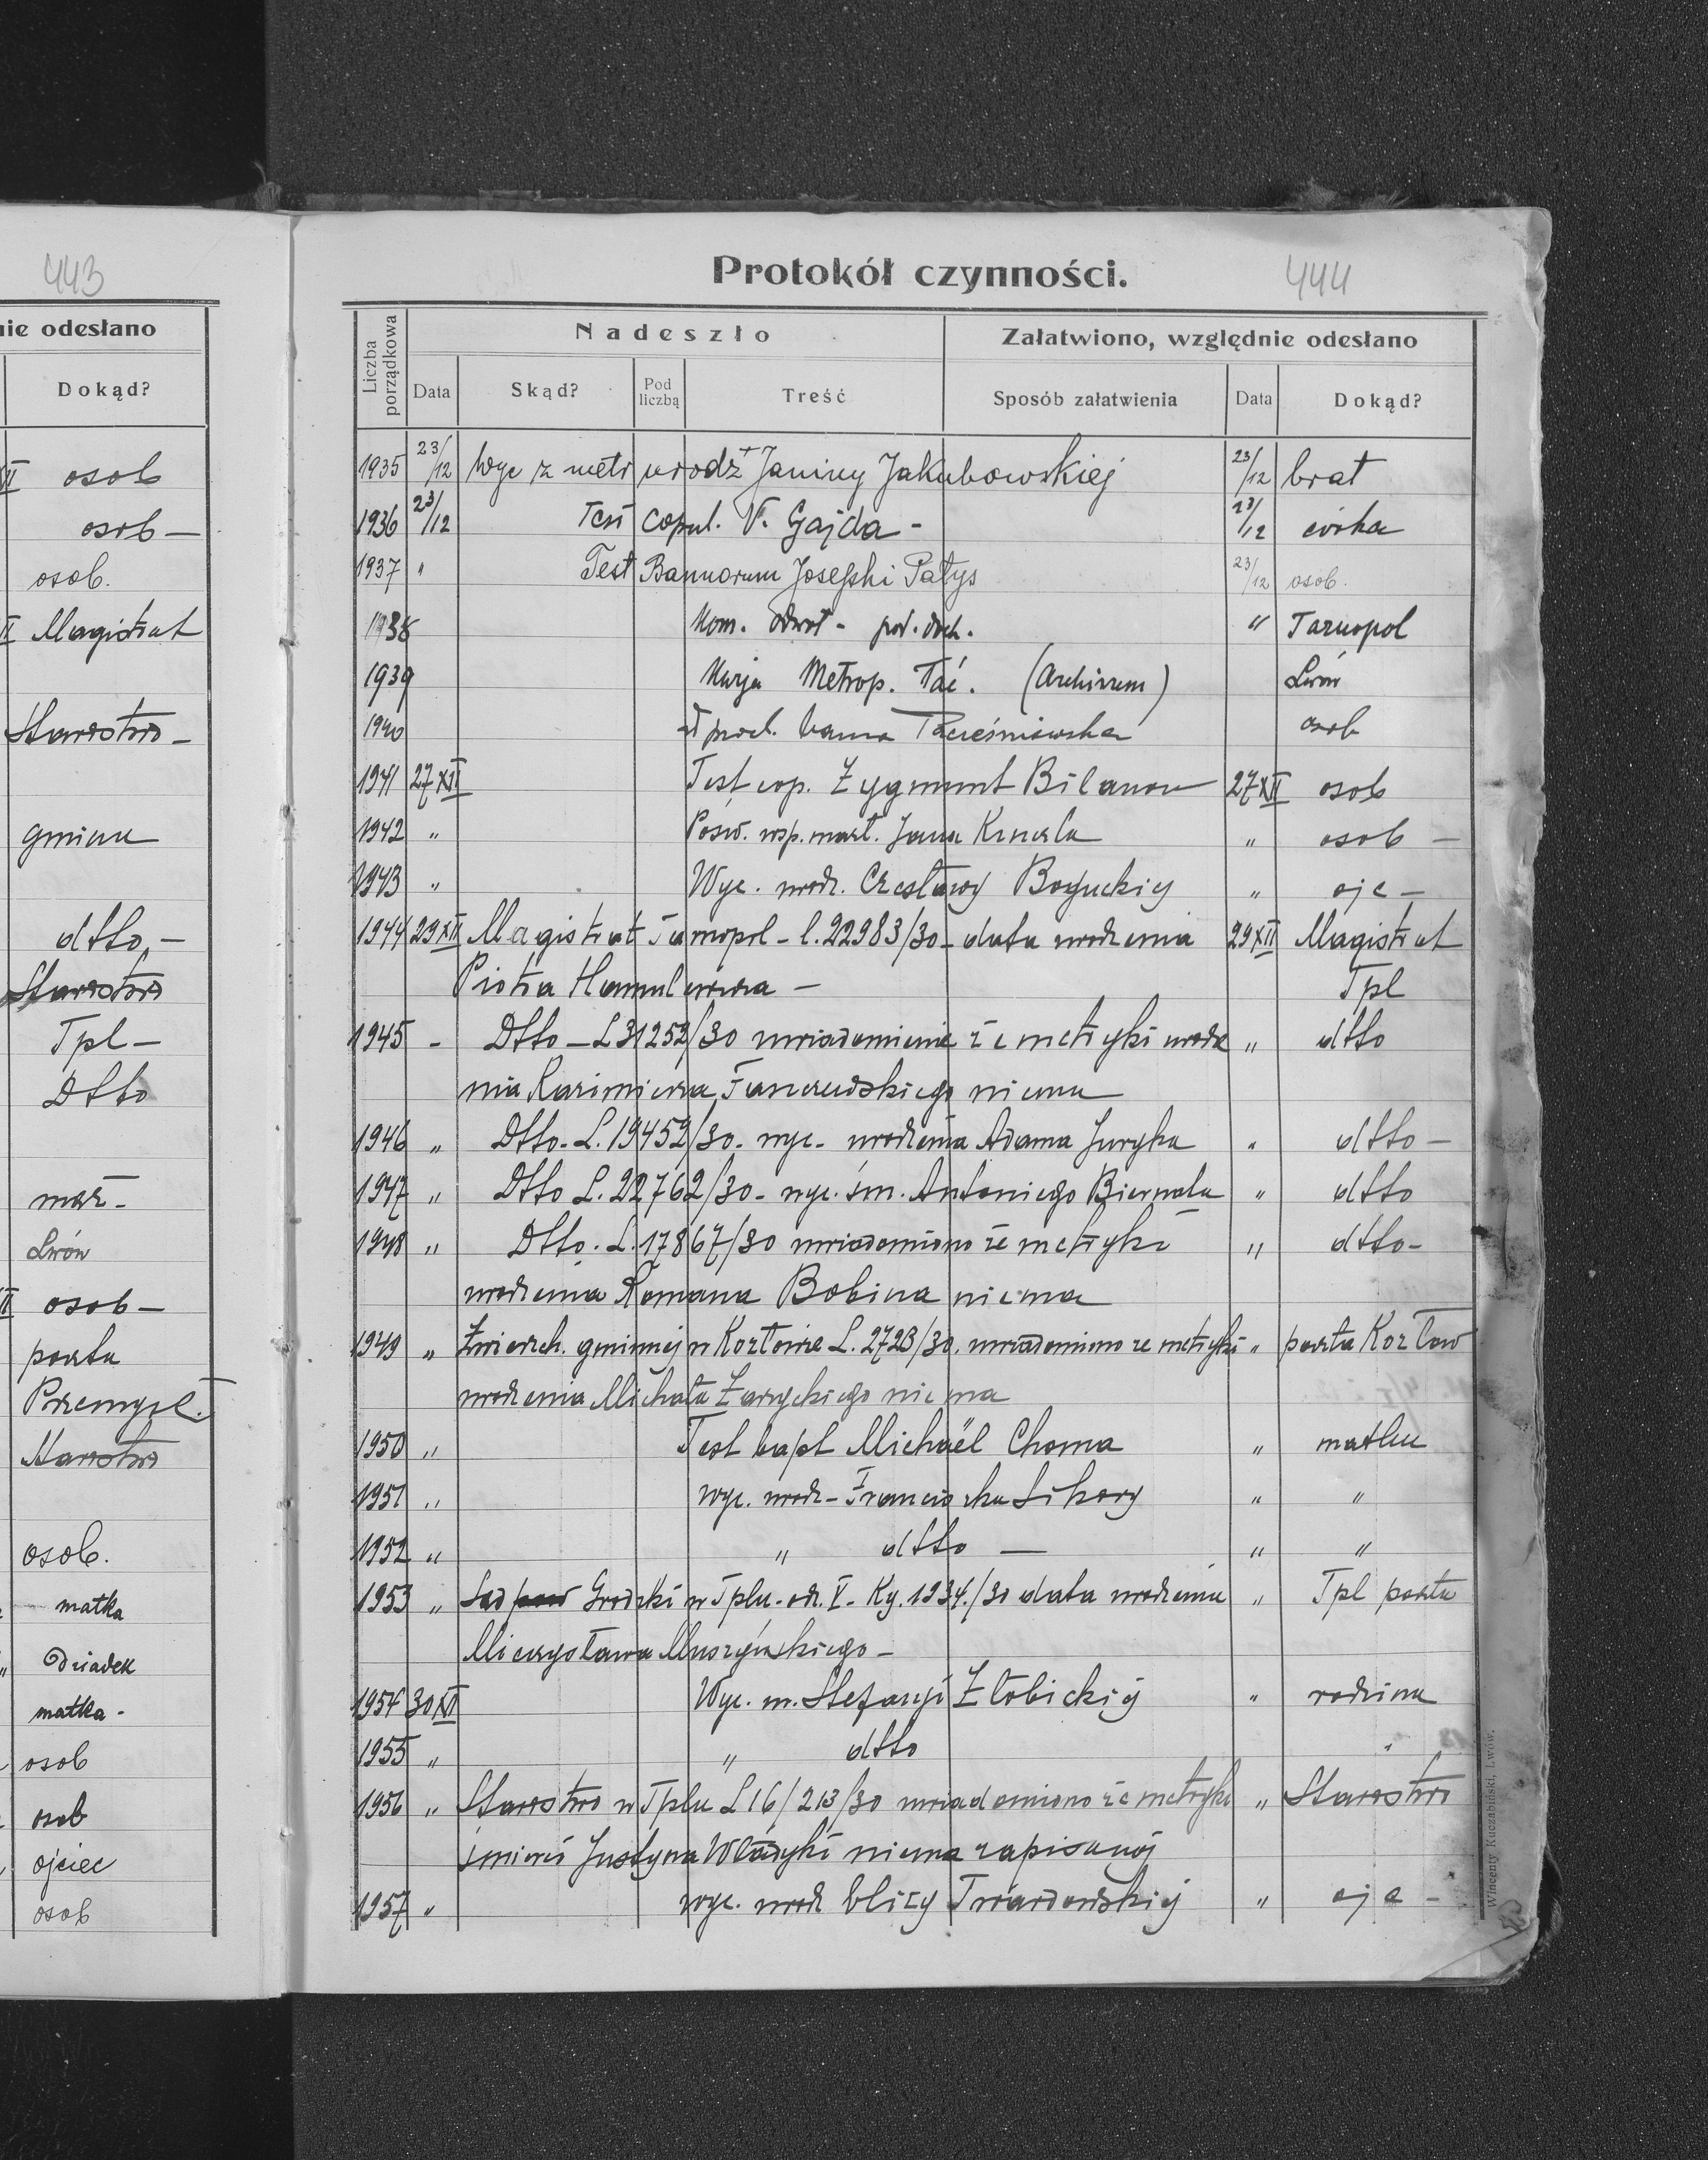 443
nie odesłano
Dokąd?
XII osob
osob —
osob.
II Magistrat
Starostwo —
gmina
dtto, —
Starostwo
Tpl —
Dtto
mąż -
Lwów
II osob —
poczta
Przemyśl.
Starostwo
osob.
matka
Dziadek
matka -
osob
osob
ojciec
osob
Protokół czynności. 444
Liczba porządkowa
Nadeszło
Załatwiono, względnie odesłano
Data Skąd? Pod liczbą Treść Sposób załatwienia Data Dokąd?
1935 23/12 Wyc z metr urodz Janiny Jakubowskiej 23/12 brat
1936 23/12 Test copul. F. Gajda - 23/12 córka
1937 " Test Bannorum Josephi Patys 23/12 osob.
1938 Kom. odwoł - pod. doch. " Tarnopol
1939 Kurja Metrop. Łać. (Archivum) Lwów
1940 osob
1941 27XII Test cop. Zygmunt Bilanow 27XII osob
1942 " Pośw. wsp. mał. Jana " osob —
1943 " Wyc. urodz. Czesławy Boguckiej " ojc —
1944 29XII Magistrat Tarnopol - l. 22983/30 - data urodzenia 29XII Magistrat
Piotra Hamulewicza — Tpl
1945 - Dtto — L 31252/30 uwiadomienie że metryki urodze " dtto
nia Kazimierza Tanczewskiego niema
1946 " Dtto - L. 19452/30 - wyc - urodzenia Adama Juryka " dtto —
1947 " Dtto L. 22762/30 - wyc. śm. Antoniego Biernata " dtto
1948 " Dtto. L. 17867/30 uwiadomiono że metryki " dtto -
urodzenia Romana Bobina niema
1949 " Zwierzch. gminnej w Kozłowie L. 2723/30. uwiadomiono że metryki " poczta Kozłow
urodzenia Michała Zaryckiego niema
1950 " Test bapt Michaël Choma " matka
1951 " wyc. urodz - Franciszka Sikory " "
1952 " " dtto — " "
1953 " Sąd Grodzki w Tplu - od. V - Kg. 1234/30 data urodzenia " Tpl poczta
Mieczysława Muszyńskiego —
1954 30XII Wyc. m. Stefanji Złobickiej " rodzina
1955 " " dtto "
1956 " Starostwo w Tplu L 16/213/30 uwiadomiono że metryki " Starostwo
śmierci Justyna Władyki niema zapisanej
1957 " wyc. urodz Elizy Twardowskiej " ojc —
Wincenty Kuczabiński, Lwów.